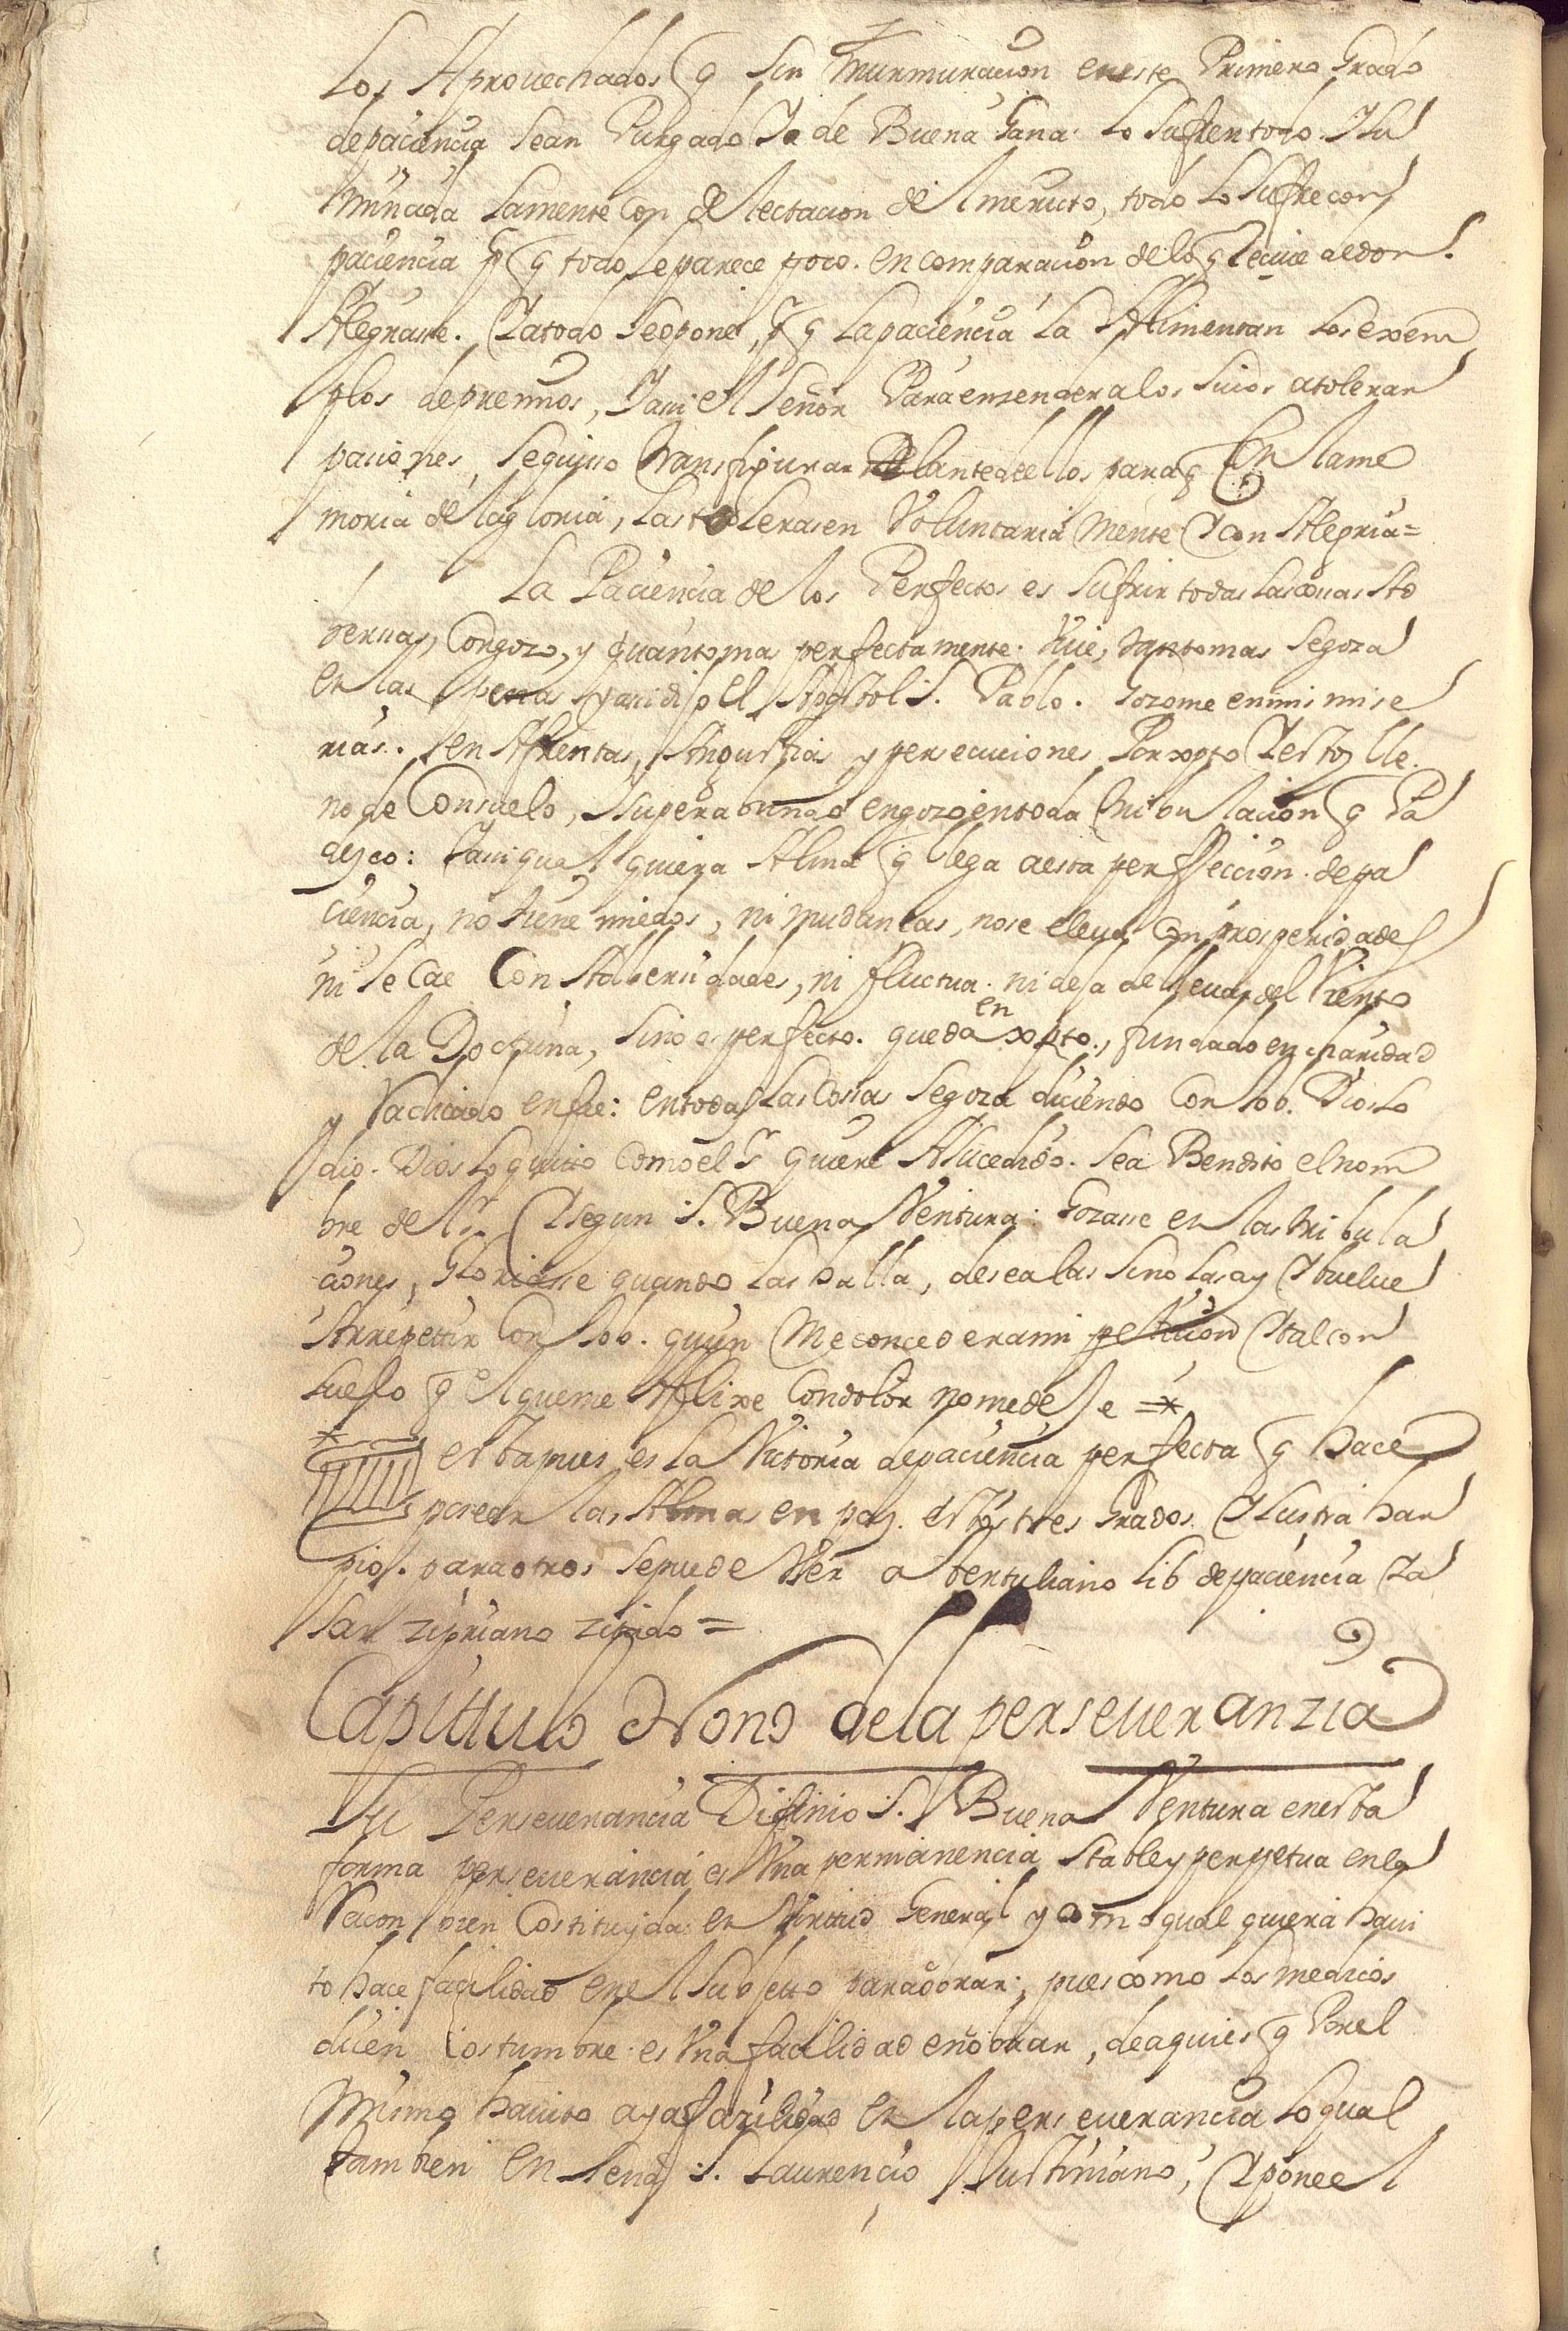 Los Aprouechados q sin murmuracion en este Primero Grado
de paciencia sean Purgado Ya de Buena Gana. lo sufren todo. Y su
samente con delectacion del merito, todo lo sufre con
paciencia p q todo le parece poco. en comparacion de lo q
Alegrasse. Y a todo se opone, p q la paciencia la Alimentan los exem
plos de premios, Y aui el Señor Para ensender a los suios a tolerar
paciones, se quiso transfigurar delante de ellos para q En la me
moria de la gloria, las tolerasen Voluntaria Mente Y con Alegria =
La Paciencia de los Perfectos es sufrir todas las cosas Ad
bersas, Con gozo, y quanto mas perfectamente. Viue, tanto mas se goza
en las penas Y asi dijo el Apostol S. Pablo. Gozome en mis mise
rias. Y en Afrentas, Angustias y persecuciones Por xpto Y estoy lle.
no de Consuelo, Y superabundo en gozo en toda tribulacion q Pa
desco: Y aui qual quiera Alma q llega a esta perffeccion. de pa
ciencia, no tiene miedos, ni mudansas, no se eleua Con prosperidades
ni se Cae Con Aduersidades, ni fluctua. ni deja de lleuar del Viento
de la Doctrina, sino es perfecto. queda en xpto., fundado en charidad
y Radicado en fee: en todas Las Cossas se goza diciendo Con Job. Dios Lo
dio. Dios lo quitto Como el Sr quiere A sucedido. sea Bendito el nom
bre del Sr. Y segun S. Buena Ventura: Gozasse en las tribula
ciones, Gloriasse quando las halla, desea las sino las ay Y buelue
A rrepetir Con Job. quien Me concedera mi peticion Y tal con
suelo q el que me Afflixe Con dolor no me deje =*
* esta pues es la Victoria de paciencia perfecta q hace
poseer las Almas en paz. estos tres Grados Har
pio. para otros se puede Ver a tertuliano lib de paciencia Y a
San zipriano zitado =
Capittulo Nono de la perseueranzia
La Perseuerancia Difinio S. Buena Ventura en esta
forma perseuerancia es Vna permanencia Stable y perpetua en la
Racon bien Costituyda: es Virttud General y como qual quiera haui
to hace facilidad en el subjetto para obrar: pues como los medicos
dicen Costumbre es Vna facilidad en obrar, de aqui es q Por el
Mismo hauito aya facilidad en la perseuerancia lo qual
tambien Enseña S. Laurencio Justiniano, Y pone el